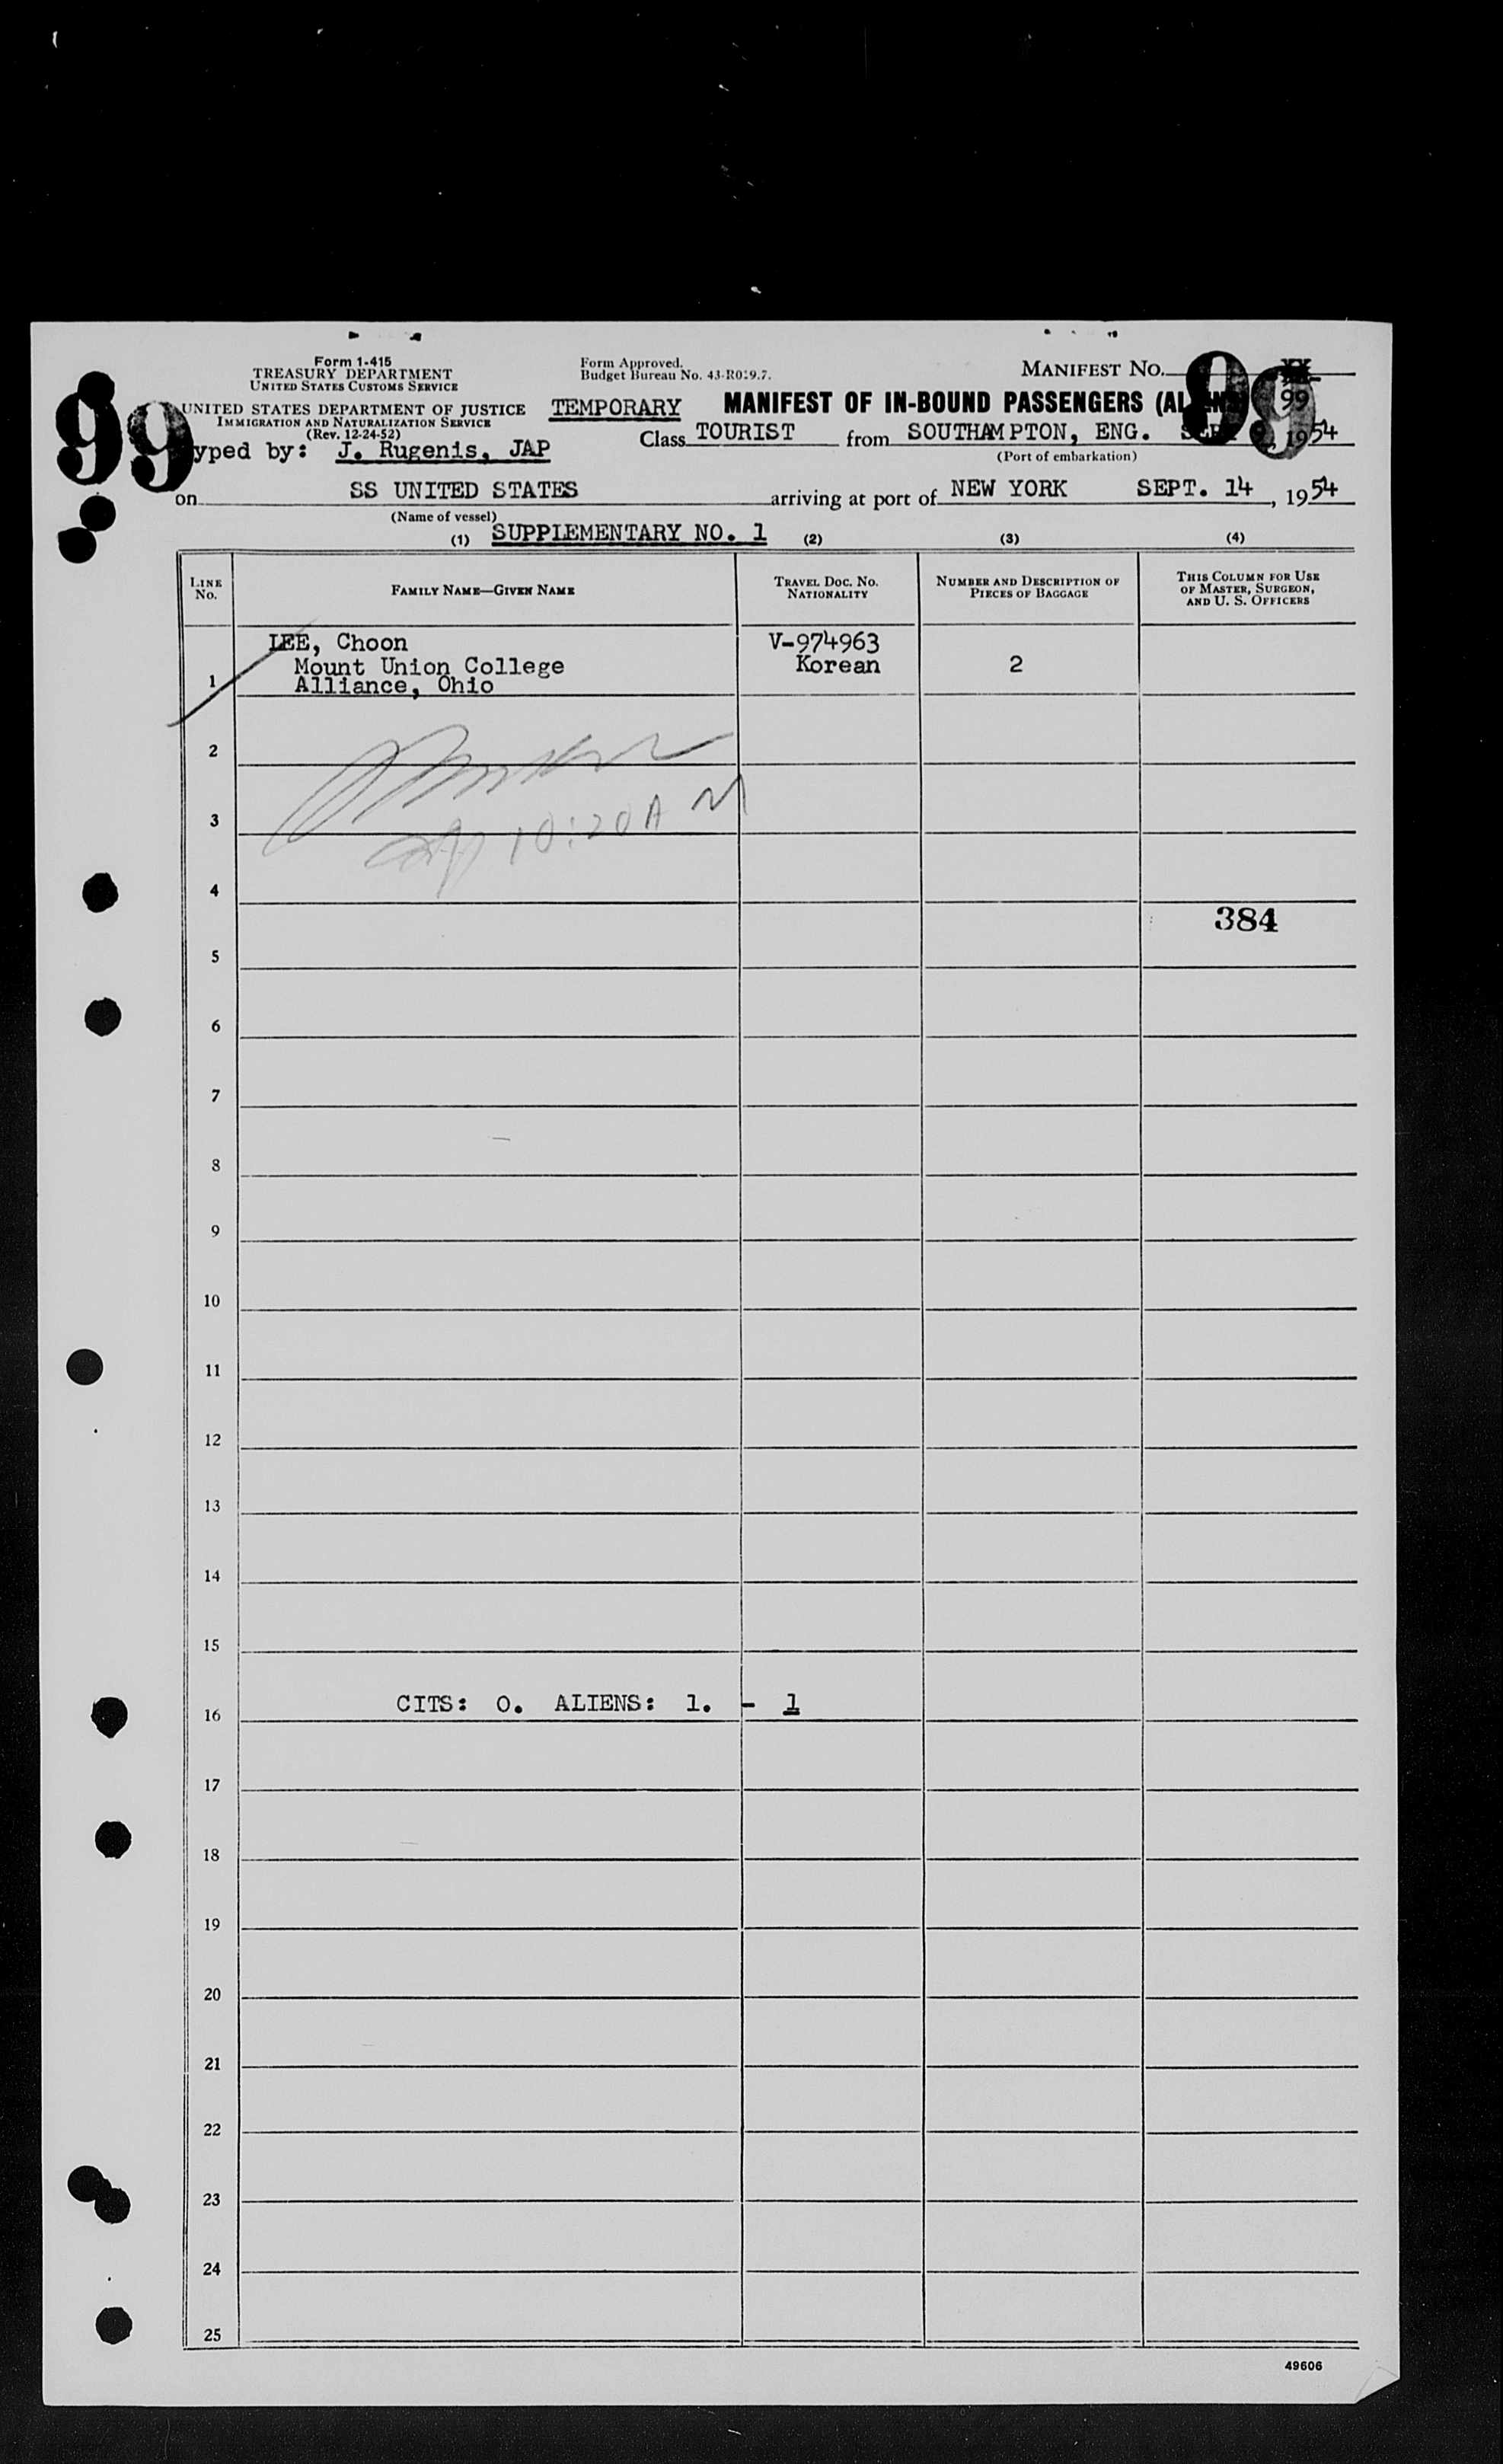 Form 1-415
TREASURY DEPARTMENT
UNITED STATES CUSTOMS SERVICE
Form Approved.
Budget Bureau No. 43-R019.7.
MANIFEST No. 99
99
UNITED STATES DEPARTMENT OF JUSTICE
IMMIGRATION AND NATURALIZATION SERVICE
(Rev. 12-24-52)
TEMPORARY MANIFEST OF IN-BOUND PASSENGERS 99
yped by: J. Rugenis, JAP
Class TOURIST from SOUTHAMPTON, ENG. 1954
(Port of embarkation)
on SS UNITED STATES arriving at port of NEW YORK SEPT. 14, 1954
(Name of vessel)
SUPPLEMENTARY NO. 1
(1) (2) (3) (4)
LINE No.
FAMILY NAME—GIVEN NAME
TRAVEL DOC. No. NATIONALITY
NUMBER AND DESCRIPTION OF PIECES OF BAGGAGE
THIS COLUMN FOR USE OF MASTER, SURGEON, AND U. S. OFFICERS
LEE, Choon V-974963
Mount Union College Korean 2
1 Alliance, Ohio
2
3
10:20 A M
4
384
5
6
7
8
9
10
11
12
13
14
15
16 CITS: 0. ALIENS: 1. - 1
17
18
19
20
21
22
23
24
25
49606